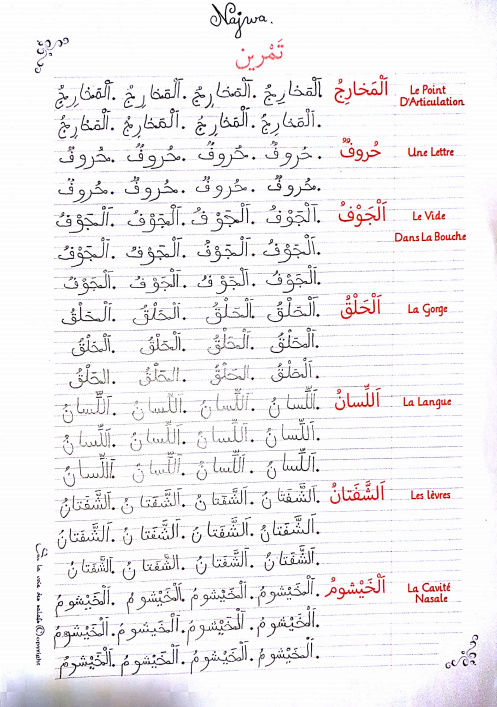 Najwa.
تَمْرين
اَلْمَخارِجُ اَلْمَخارِجُ. اَلْمَخارِجُ. اَلْمَخارِجُ. اَلْمَخارِجُ Le Point D'Articulation
اَلْمَخارِجُ. اَلْمَخارِجُ. اَلْمَخارِجُ. اَلْمَخارِجُ
حُروفٌ حُروفٌ. حُروفٌ. حُروفٌ. حُروفٌ Une Lettre
حُروفٌ. حُروفٌ. حُروفٌ. حُروفٌ
اَلْجَوْفُ اَلْجَوْفُ. اَلْجَوْفُ. اَلْجَوْفُ. اَلْجَوْفُ Le Vide
اَلْجَوْفُ. اَلْجَوْفُ. اَلْجَوْفُ. اَلْجَوْفُ Dans La Bouche
اَلْجَوْفُ. اَلْجَوْفُ. اَلْجَوْفُ. اَلْجَوْفُ
اَلْحَلْقُ اَلْحَلْقُ. اَلْحَلْقُ. اَلْحَلْقُ. اَلْحَلْقُ La Gorge
اَلْحَلْقُ. اَلْحَلْقُ. اَلْحَلْقُ. اَلْحَلْقُ
اَلْحَلْقُ. اَلْحَلْقُ. اَلْحَلْقُ. اَلْحَلْقُ
اَللِّسانُ اَللِّسانُ. اَللِّسانُ. اَللِّسانُ. اَللِّسانُ La Langue
اَللِّسانُ. اَللِّسانُ. اَللِّسانُ. اَللِّسانُ
اَللِّسانُ. اَللِّسانُ. اَللِّسانُ. اَللِّسانُ
اَلشَّفَتانُ اَلشَّفَتانُ. اَلشَّفَتانُ. اَلشَّفَتانُ. اَلشَّفَتانُ Les lèvres
اَلشَّفَتانُ. اَلشَّفَتانُ. اَلشَّفَتانُ. اَلشَّفَتانُ
اَلشَّفَتانُ. اَلشَّفَتانُ. اَلشَّفَتانُ. اَلشَّفَتانُ
اَلْخَيْشومُ اَلْخَيْشومُ. اَلْخَيْشومُ. اَلْخَيْشومُ. اَلْخَيْشومُ La Cavité Nasale
اَلْخَيْشومُ. اَلْخَيْشومُ. اَلْخَيْشومُ. اَلْخَيْشومُ
اَلْخَيْشومُ. اَلْخَيْشومُ. اَلْخَيْشومُ. اَلْخَيْشومُ